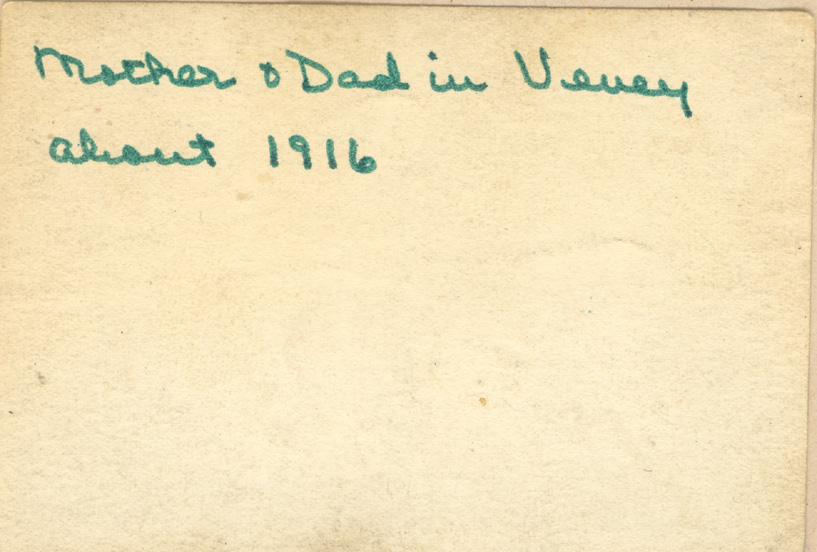 Mother & Dad in Vevey
about 1916